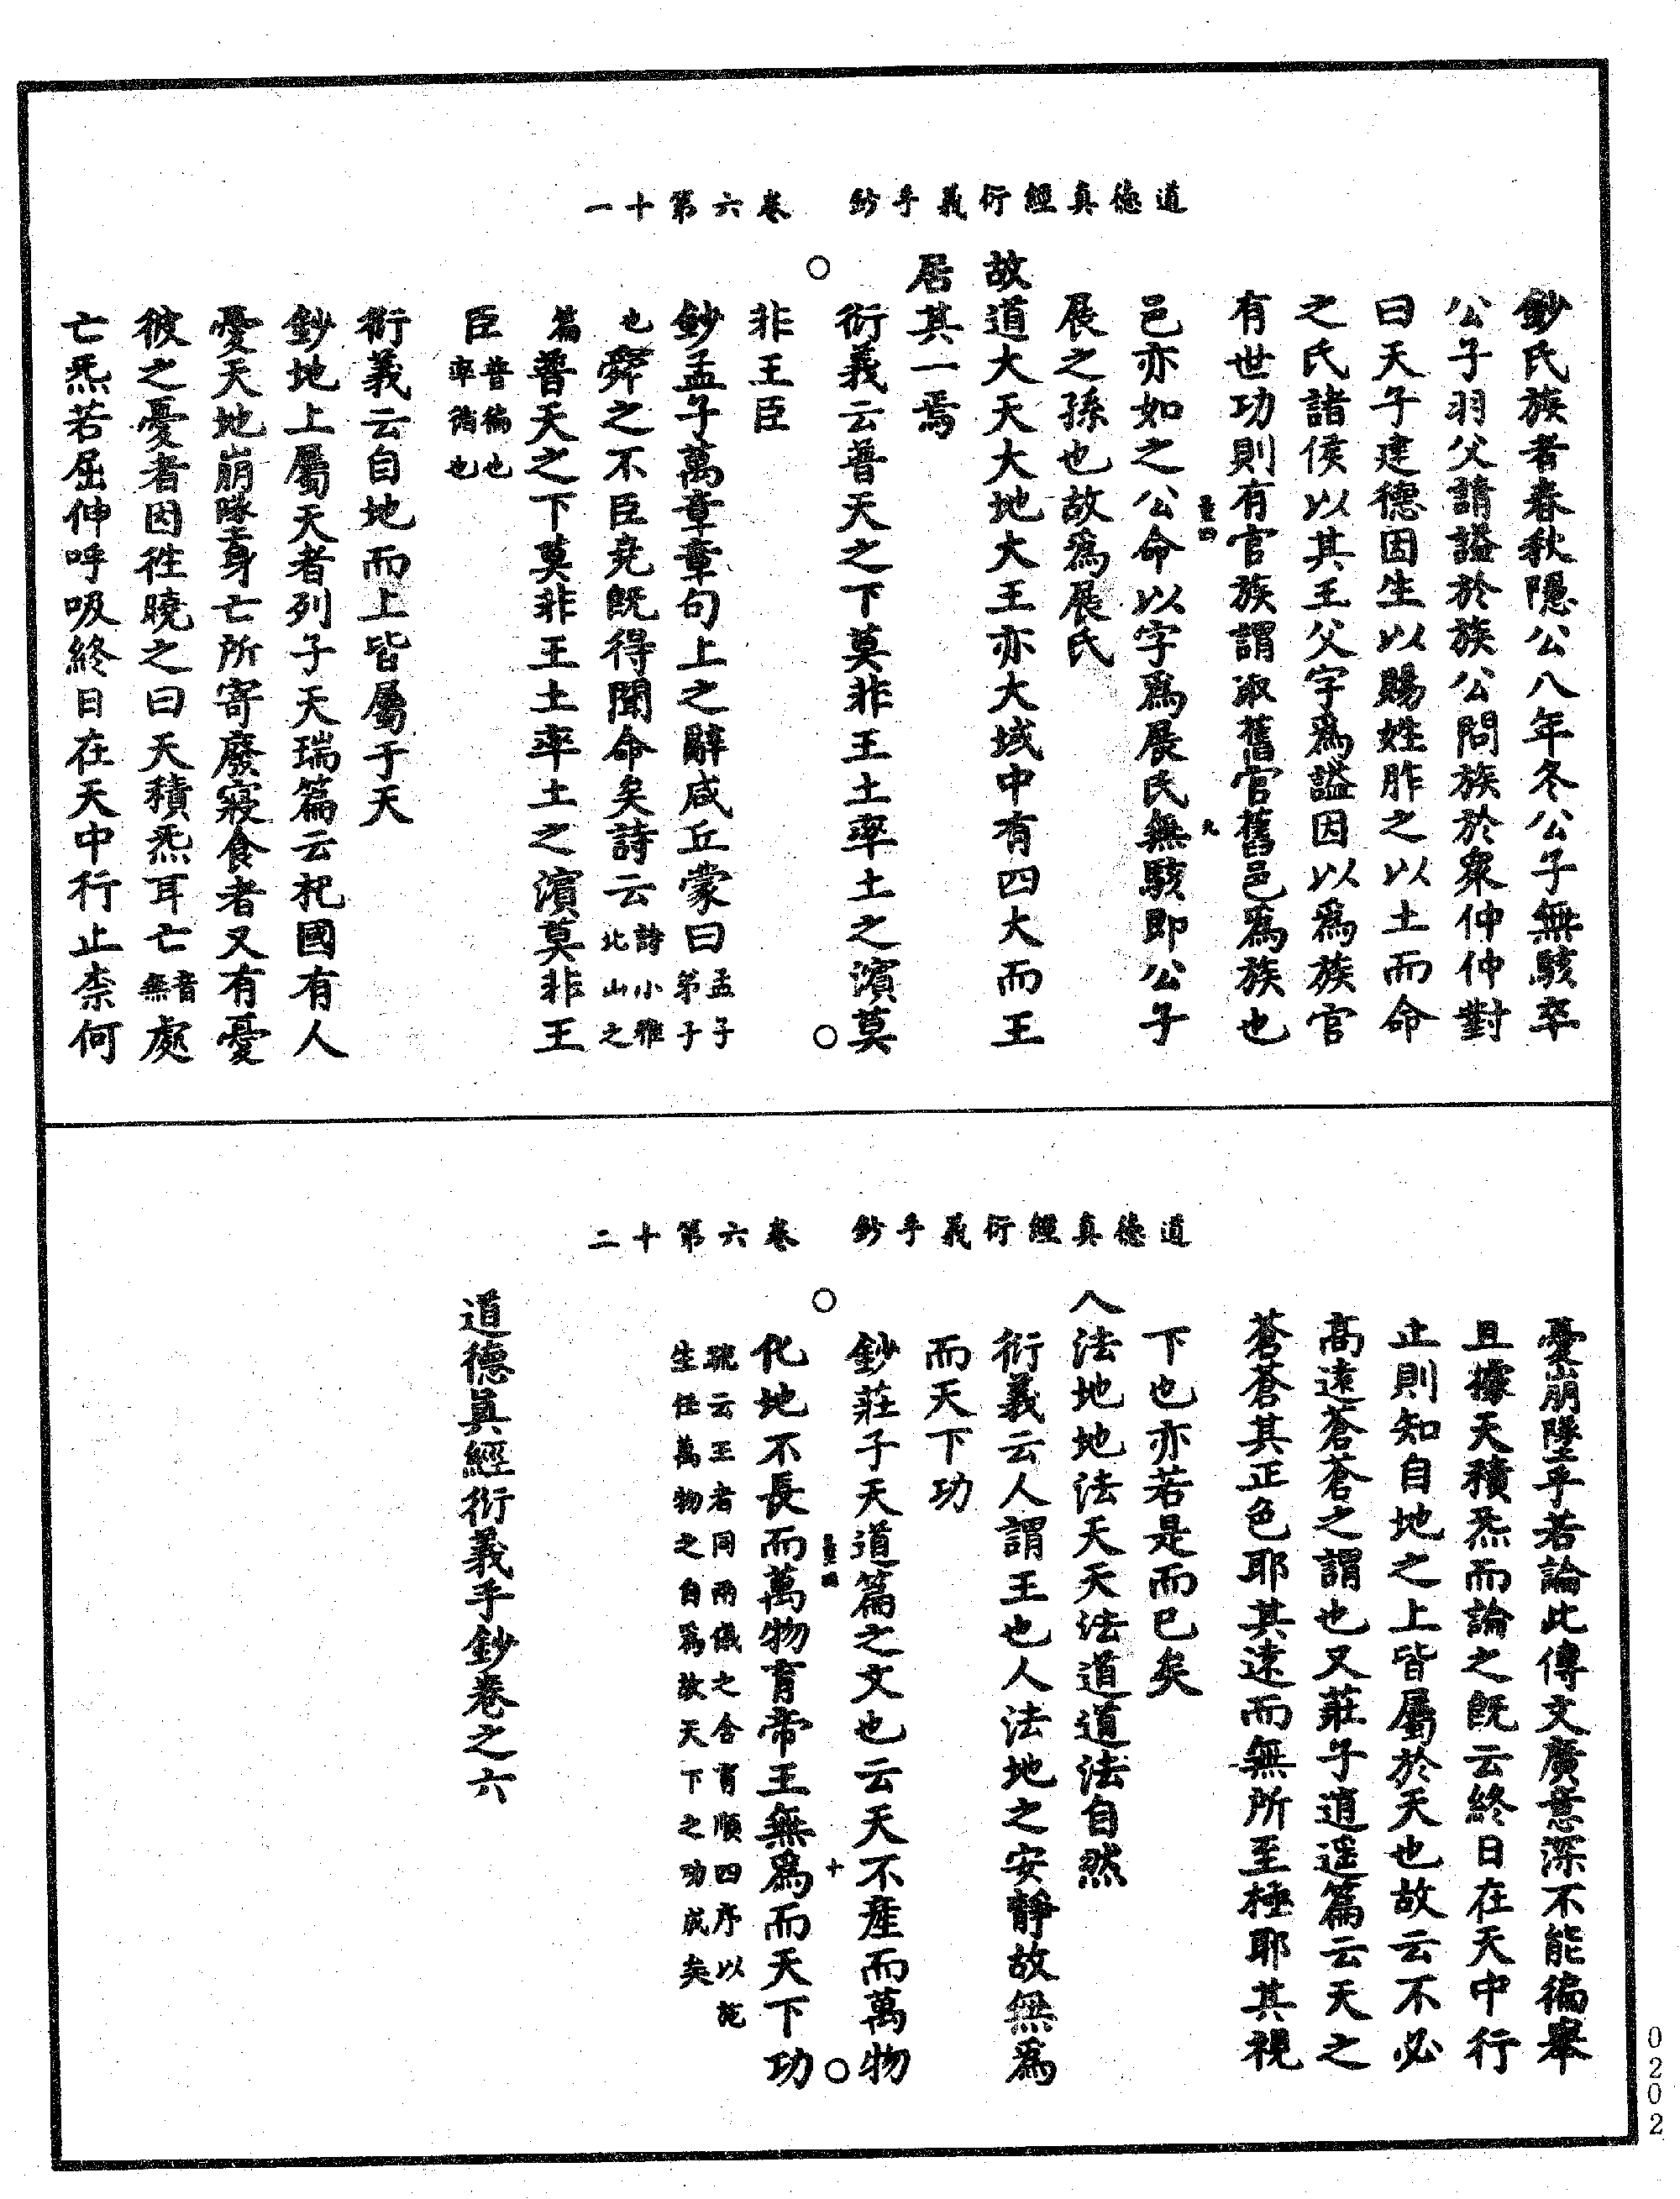 道德真經衍義手鈔　卷六第十一
鈔氏族者春秋隱公八年冬公子無駭卒
公子羽父請謚於族公問族於衆仲仲對
曰天子建德因生以賜姓胙之以土而命
之氏諸侯以其王父字爲謚因以爲族官
有世功則有官族謂取舊官舊邑爲族也
邑亦如之公命以字爲展氏無駭即公子
展之孫也故爲展氏
故道大天大地大王亦大域中有四大而王
居其一焉
衍義云普天之下莫非王土率土之濱莫
非王臣
鈔孟子萬章章句上之辭咸丘蒙曰孟子弟子
也舜之不臣堯既得聞命矣詩云詩小雅北山之
篇普天之下莫非王土率土之濱莫非王
臣普徧也率循也
衍義云自地而上皆屬于天
鈔地上屬天者列子天瑞篇云杞國有人
憂天地崩墜身亡所寄廢寢食者又有憂
彼之憂者因徃曉之曰天積炁耳亡音無處
亡炁若屈伸呼吸終日在天中行止柰何
道德真經衍義手鈔　卷六第十二
憂崩墜乎若論此傳文廣意深不能徧舉
且據天積炁而論之既云終日在天中行
止則知自地之上皆屬於天也故云不必
高遠蒼蒼之謂也又莊子逍遥篇云天之
蒼蒼其正色耶其遠而無所至極耶其視
下也亦若是而已矣
人法地地法天天法道道法自然
衍義云人謂王也人法地之安靜故無爲
而天下功
鈔莊子天道篇之文也云天不産而萬物
化地不長而萬物育帝王無爲而天下功
疏云王者同兩儀之含育順四序以施
生任萬物之自爲故天下之功成矣
道德真經衍義手鈔卷之六
九
十
0202